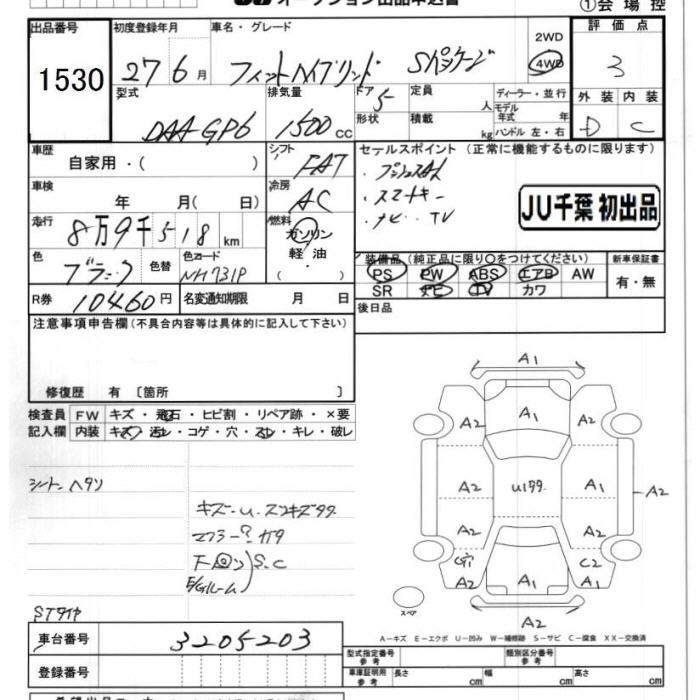 オークション出品申込書
①会場控
出品番号
1530
初度登録年月
27年6月
車名・グレード
フィットハイブリッド Sパッケージ
2WD
4WD
評価点
3
型式
DAA-GP6
排気量
1500cc
ドア
5
形状
定員
人
積載
kg
ディーラー・並行
モデル年式 年
ハンドル 左・右
外装 内装
D C
車歴
自家用・( )
シフト
FAT
セールスポイント (正常に機能するものに限ります)
・プッシュスタート
・スマートキー
・ナビ・TV
JU千葉 初出品
車検
年 月( 日)
冷房
AC
走行
8万9千518km
燃料
ガソリン
軽油
・( )
色
ブラック
色替
色コード
NH731P
装備品 (純正品に限り○をつけてください)
PS PW ABS エアB AW
SR ナビ TV カワ
新車保証書
有・無
R券
10460円
名変通知期限 月 日
後日品
注意事項申告欄(不具合内容等は具体的に記入して下さい)
修復歴 有 〔箇所 〕
検査員
記入欄
FW キズ・飛石・ヒビ割・リペア跡・×要
内装 キズ・汚レ・コゲ・穴・スレ・キレ・破レ
シートヘタリ
キズ・U・スリキズ多々
マフラー?ガタ
下回り S.C
E/Gルーム
STタイヤ
A1
A2 A1 A2
A2 U1多々 A1 A2
A2 A2
C2
A2 A1 A2
A2
スペア
A-キズ E-エクボ U-凹み W-補修跡 S-サビ C-腐食 XX-交換済
車台番号
3205203
登録番号
型式指定番号
参考
類別区分番号
参考
車庫証明用
参考
長さ cm
幅 cm
高さ cm